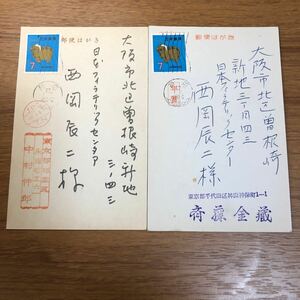 郵便はがき
7
大阪市北区曽根崎新地
三ノ四三
日本フィラテリックセンター
西岡辰二様
郵便はがき
7
大阪市北区曽根崎
新地三ノ四三
日本フィラテリックセンター
西岡辰二様
年賀
東京都千代田区神田神保町1-1
斉藤金蔵